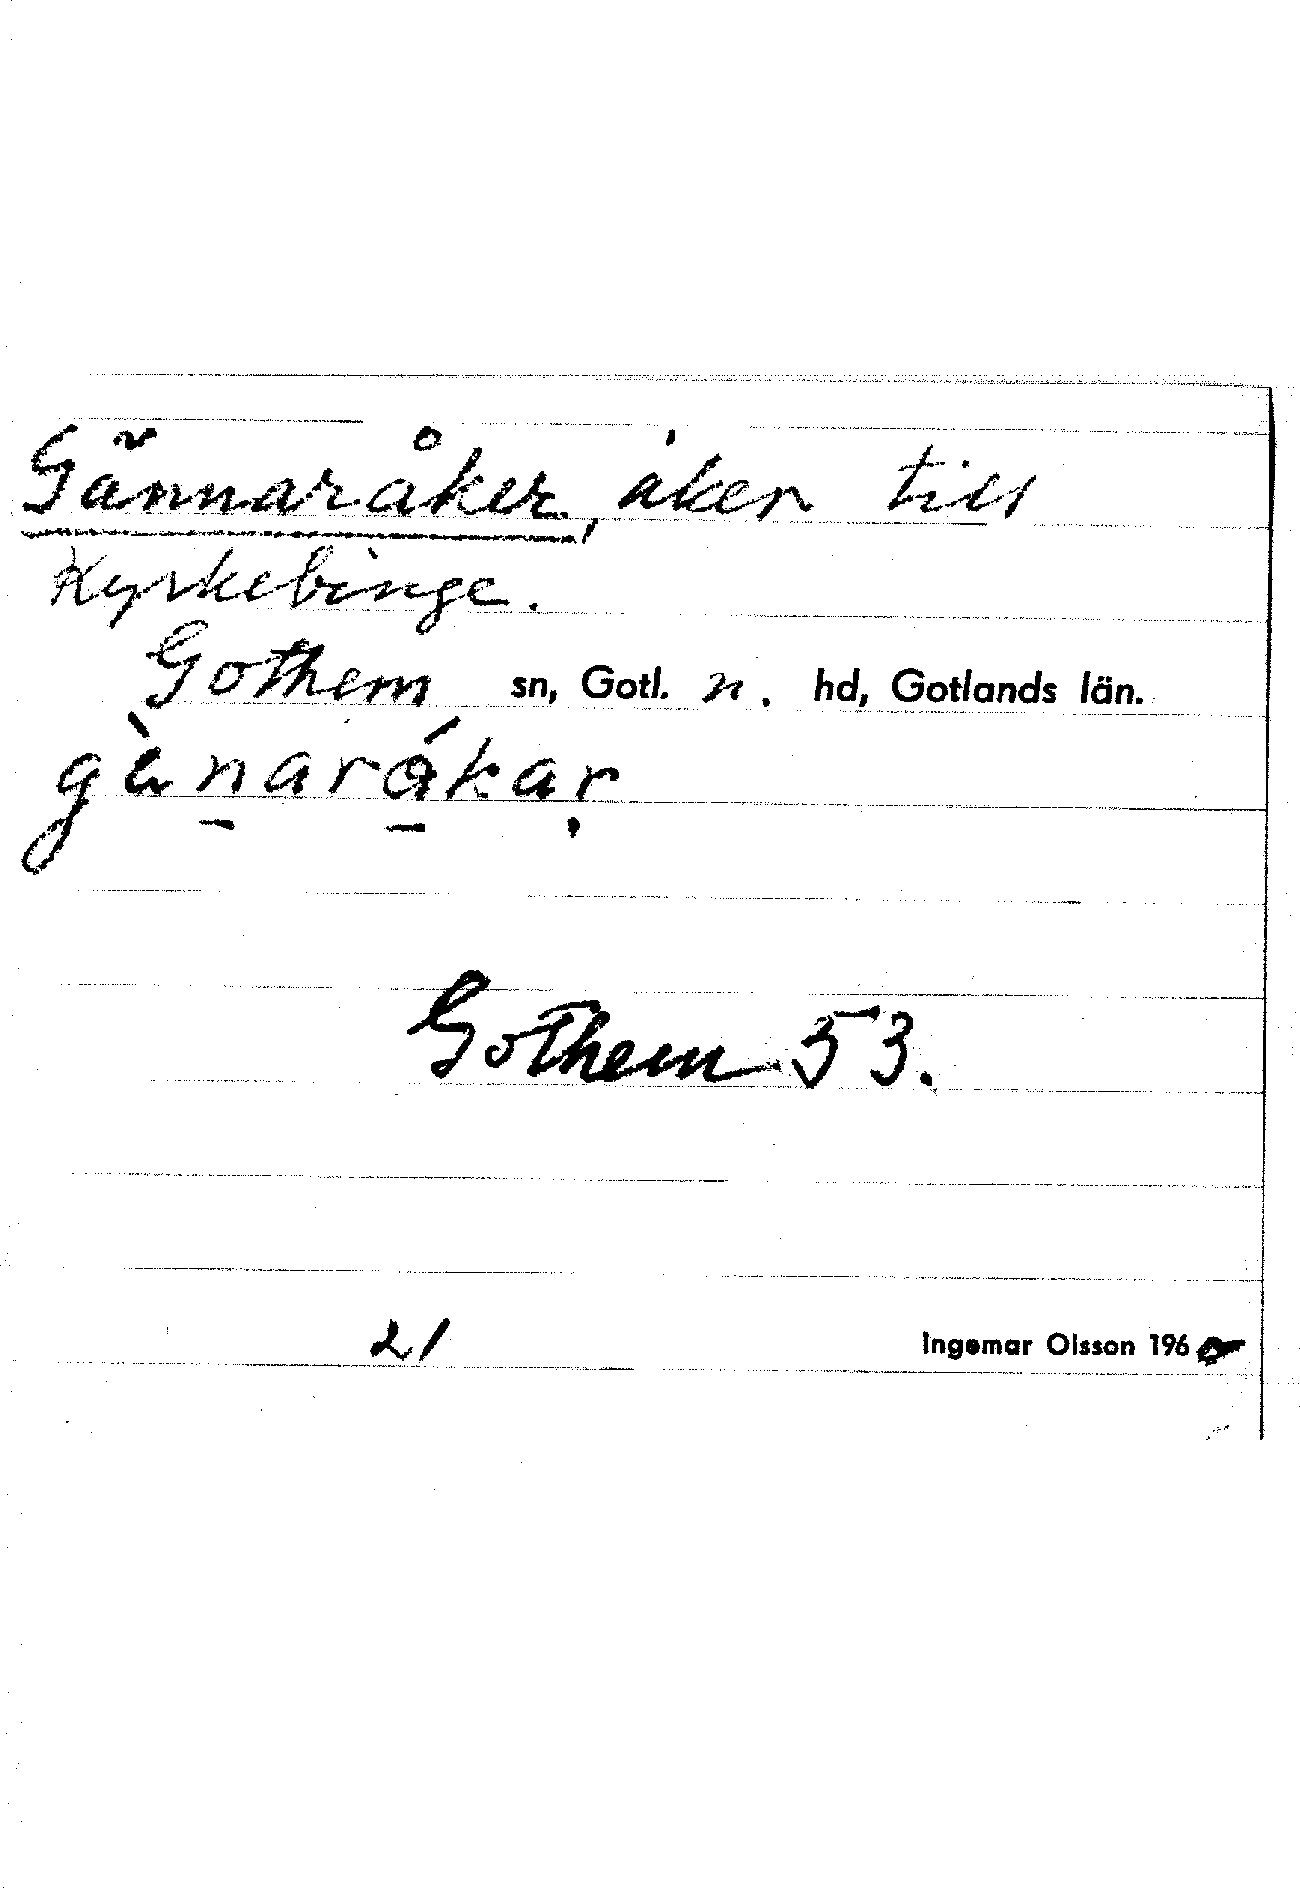 Gännaråker, åker till
Kyrkebinge.
Gothem sn, Gotl. n. hd, Gotlands län.
gànarákar
Gothem 53.
21
Ingemar Olsson 1960